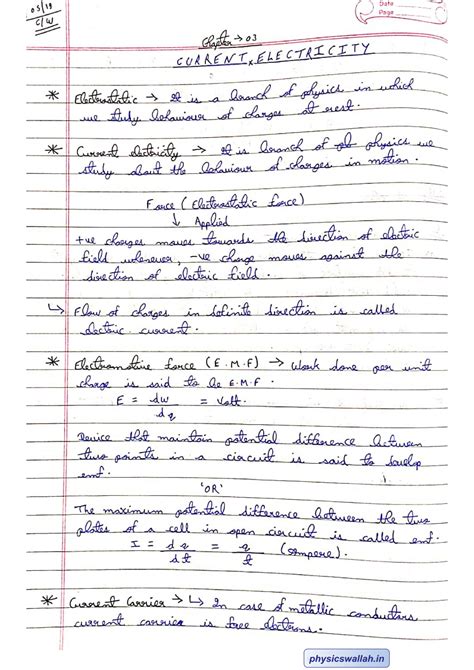 05/19
C/W
Date
Page
Chapter → 03
CURRENT ELECTRICITY
* Electrostatic → It is a branch of physics in which
we study behaviour of charges at rest.
* Current electricity → It is branch of physics we
study about the behaviour of charges in motion.
Force (Electrostatic force)
↓ Applied
+ve charges moves towards the direction of electric
field whenever, -ve charge moves against the
direction of electric field.
↳ Flow of charges in definite direction is called
electric current.
* Electromotive force (E.M.F) → Work done per unit
charge is said to be E.M.F.
E = dw/dq = Volt.
Device that maintain potential difference between
two points in a circuit is said to develop
emf.
'OR'
The maximum potential difference between the two
plates of a cell in open circuit is called emf.
I = dq/dt = q/t (Ampere).
* Current Carrier → ↳ In case of metallic conductors
current carrier is free electrons.
physicswallah.in